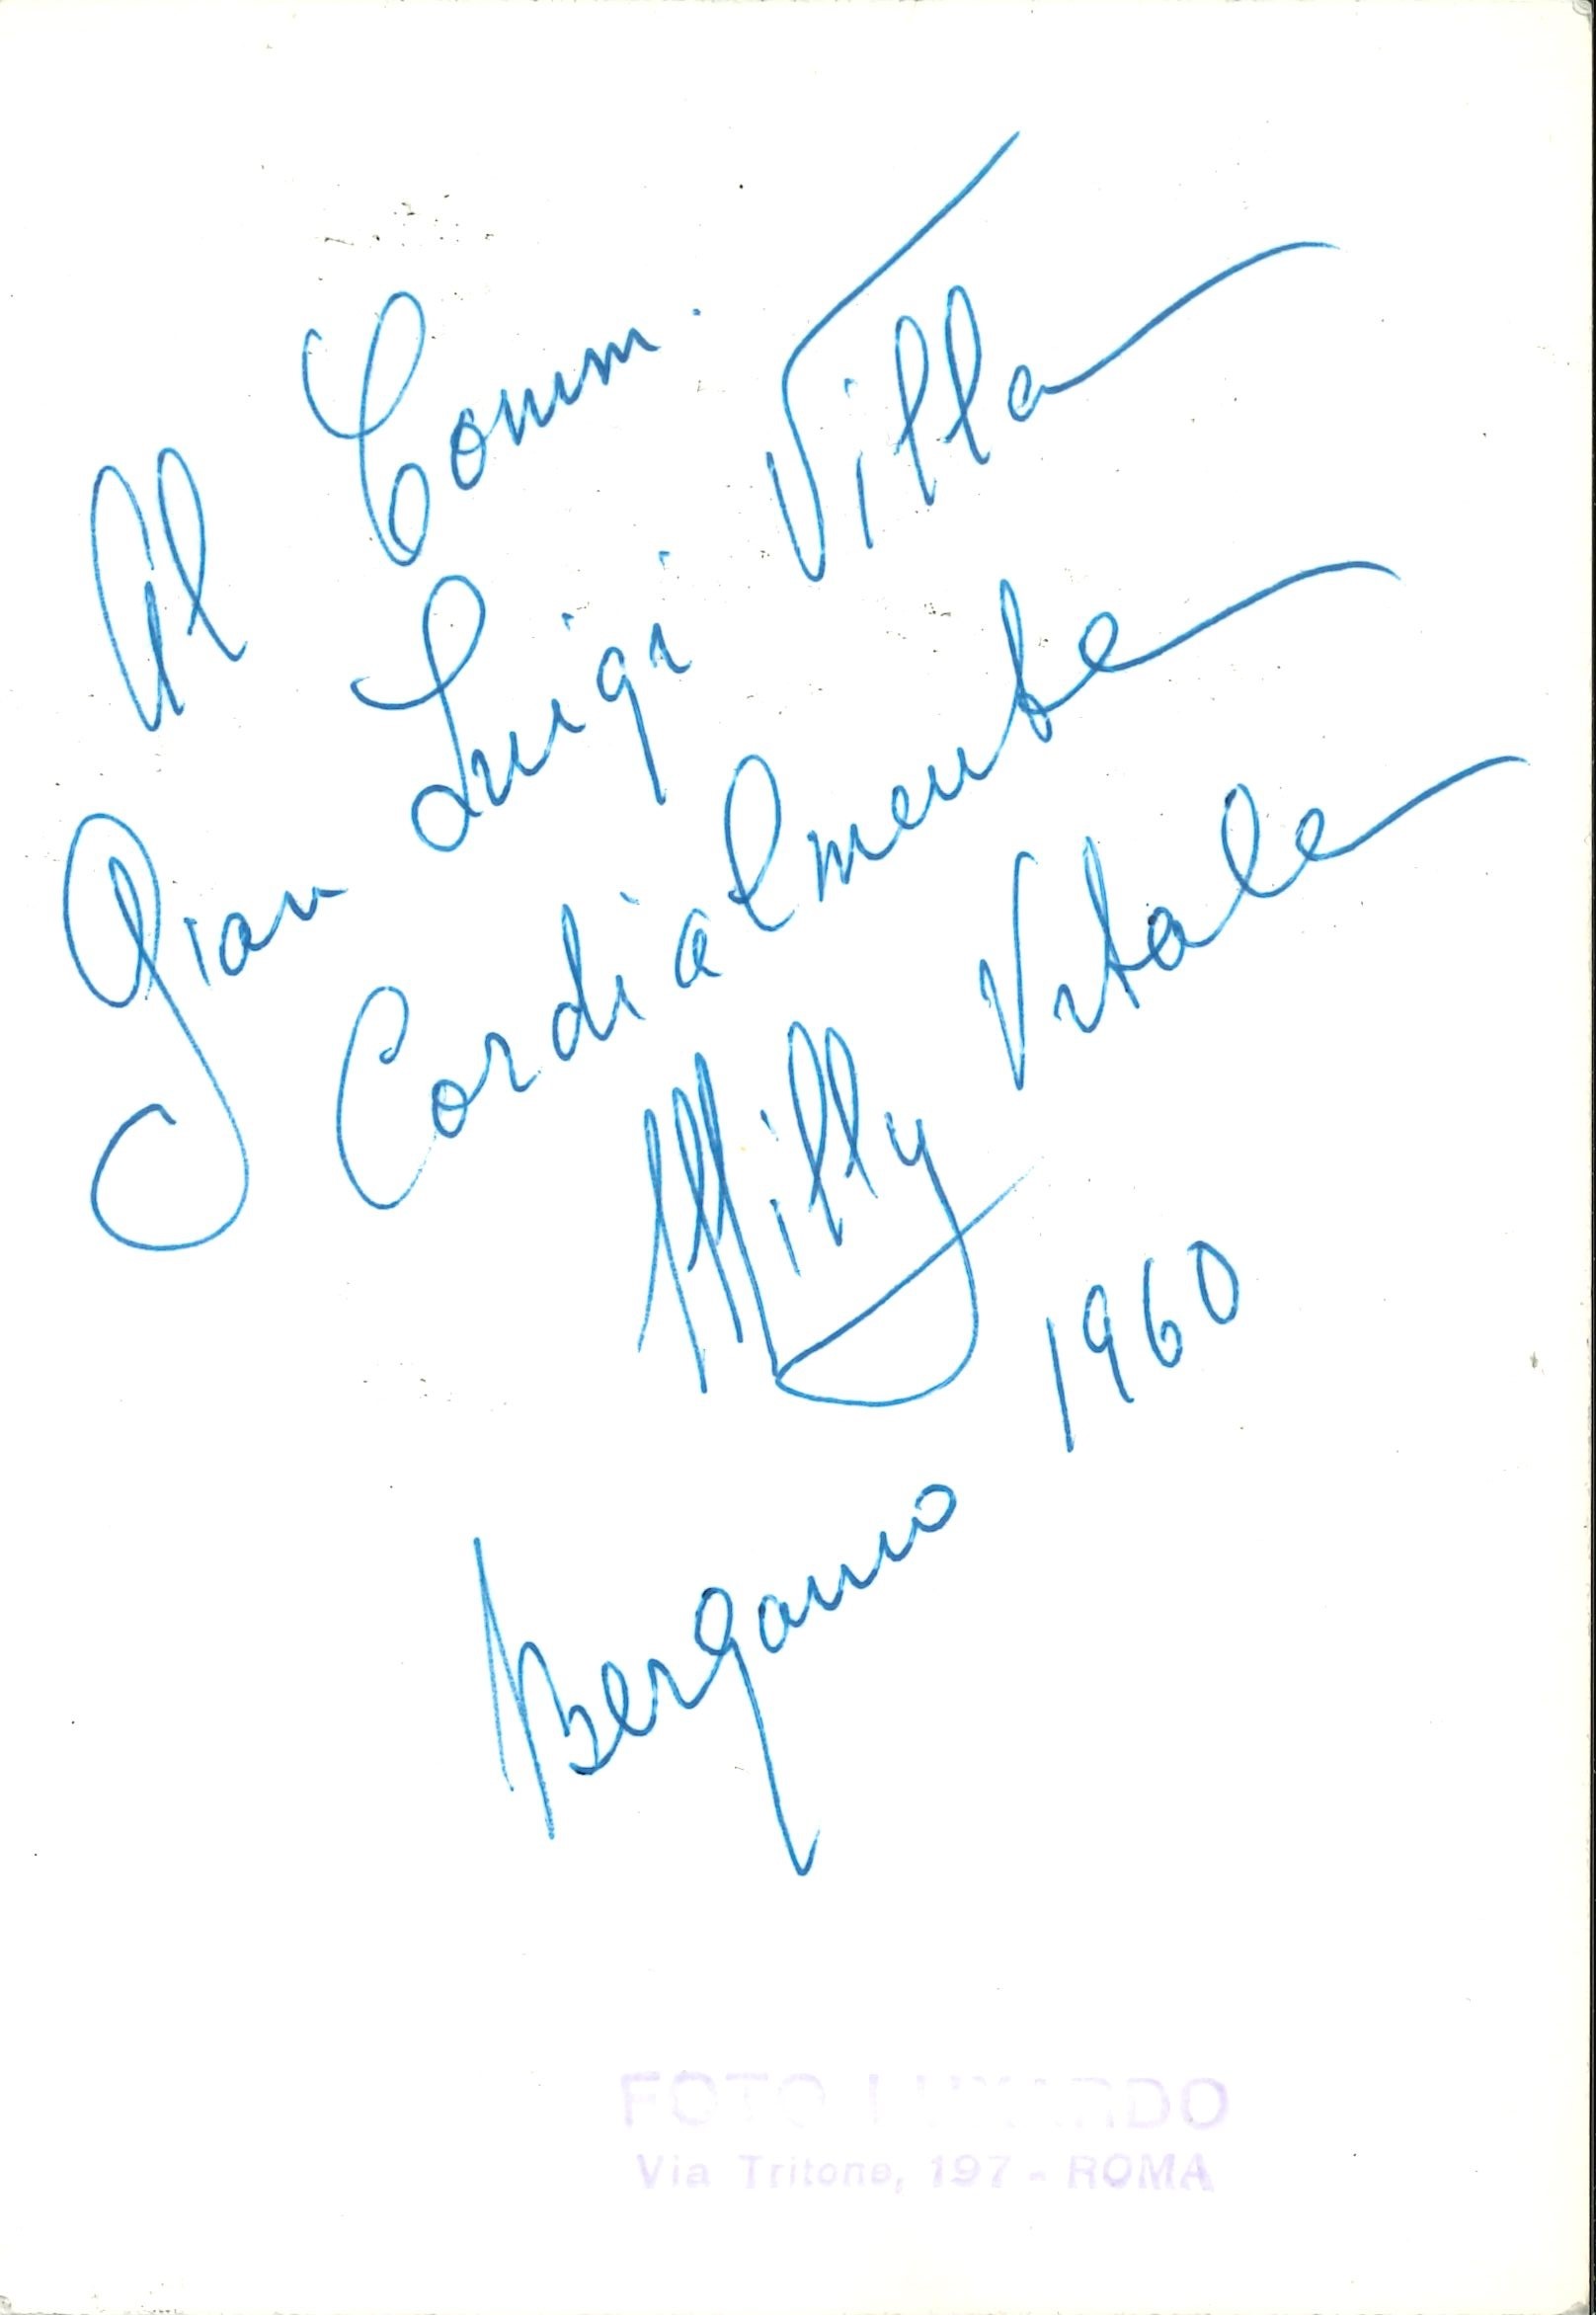 Al Comm.
Gian Luigi Villa
Cordialmente
Milly Vitale
Bergamo 1960
FOTO LUXARDO
Via Tritone, 197 - ROMA